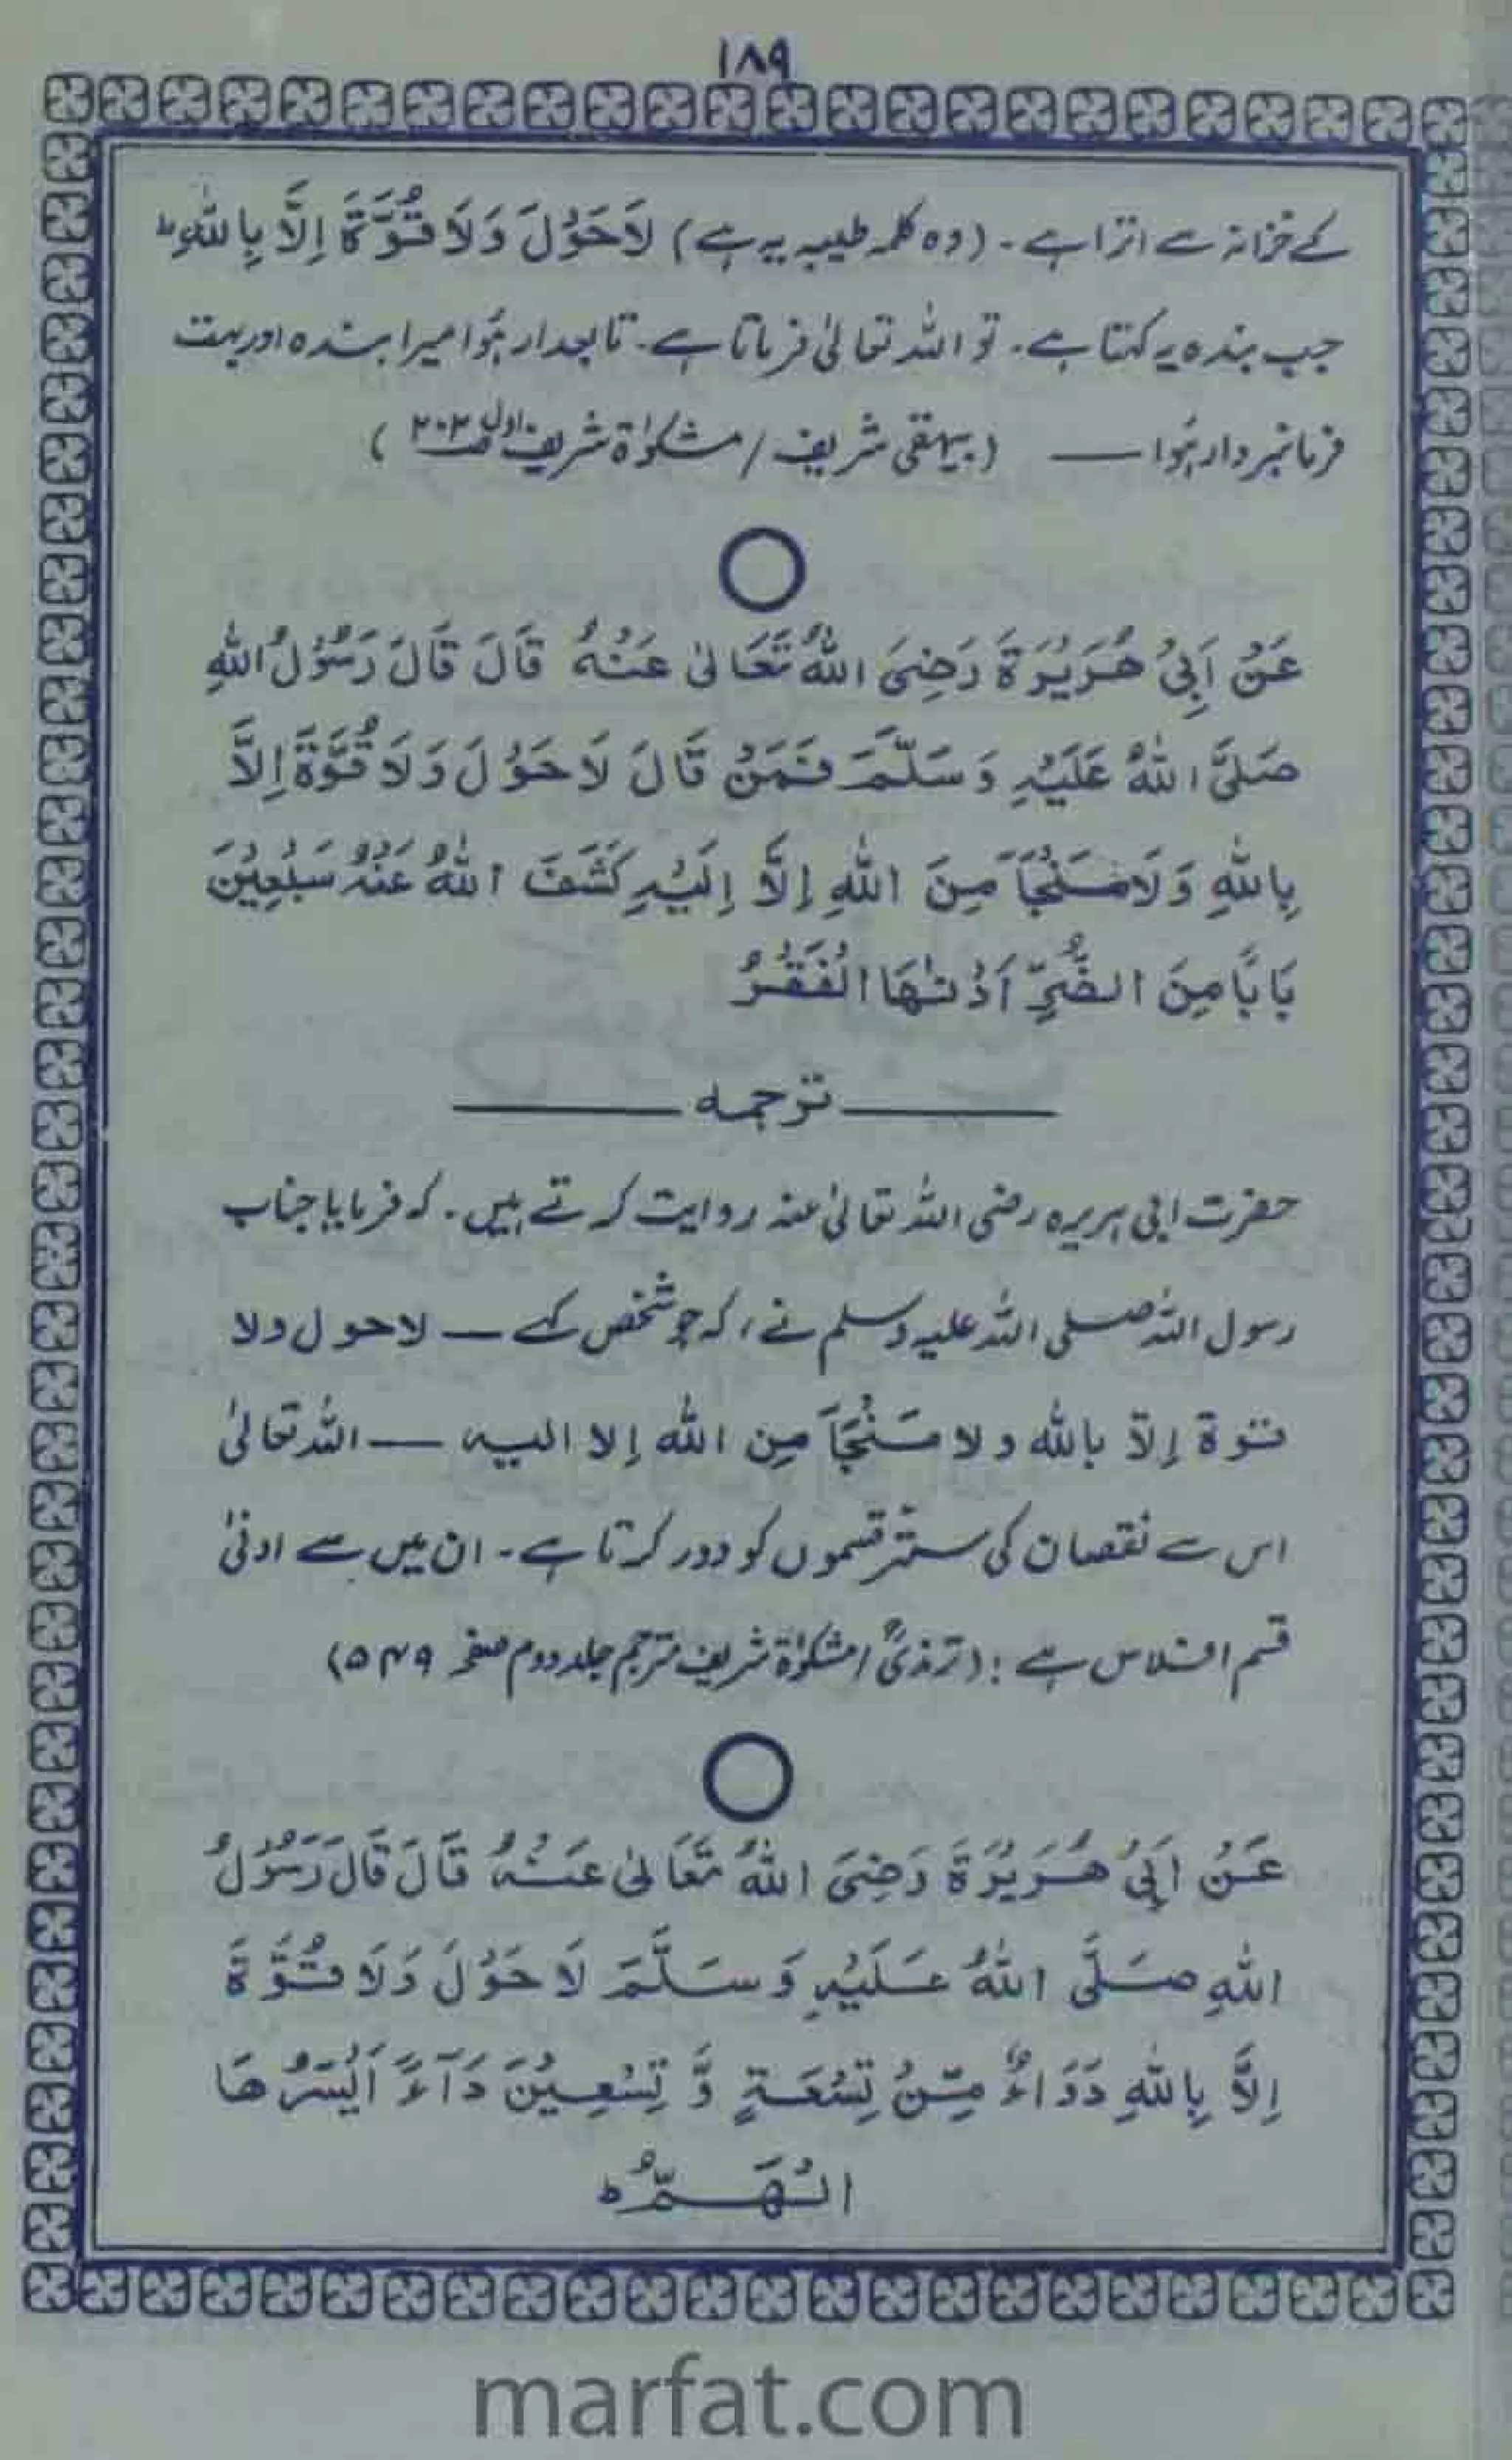 ۱۸۹
کے خزانہ سے اترا ہے۔ (وہ کلمہ طیبہ یہ ہے) لَاحَوْلَ وَلَا قُوَّةَ اِلَّا بِاللّٰهِ ط
جب بندہ یہ کہتا ہے۔ تو اللہ تعالیٰ فرماتا ہے۔ تابعدار ہُوا میرا بندہ اور بہت
فرمانبردار ہُوا — (بیہقی شریف / مشکوٰة شریف اول ص ۲۰۲)
عَنْ اَبِیْ هُرَیْرَةَ رَضِیَ اللهُ تَعَالیٰ عَنْهُ قَالَ قَالَ رَسُوْلُ اللهِ
صَلَّی اللهُ عَلَیْهِ وَسَلَّمَ فَمَنْ قَالَ لَا حَوْلَ وَلَا قُوَّةَ اِلَّا
بِاللهِ وَلَا مَنْجَأَ مِنَ اللهِ اِلَّا اِلَیْهِ كَشَفَ اللهُ عَنْهُ سَبْعِیْنَ
بَابًا مِنَ الضُّرِّ اَدْنٰهَا الْفَقْرُ
ترجمہ
حضرت ابی ہریرہ رضی اللہ تعالیٰ عنہ روایت کرتے ہیں۔ کہ فرمایا جناب
رسول اللہ صلی اللہ علیہ وسلم نے، کہ جو شخص کہے — لا حول ولا
قوة إلّا بالله ولا مَنْجَأَ من الله إلا اليه — اللہ تعالیٰ
اس سے نقصان کی ستّر قسموں کو دور کرتا ہے۔ ان میں سے ادنیٰ
قسم افلاس ہے : (ترمذیؒ / مشکوٰة شریف مترجم جلد دوم صفحہ ۵۴۹)
عَنْ اَبِیْ هُرَیْرَةَ رَضِیَ اللهُ تَعَالیٰ عَنْهُ قَالَ قَالَ رَسُوْلُ
اللهِ صَلَّی اللهُ عَلَیْهِ وَسَلَّمَ لَا حَوْلَ وَلَا قُوَّةَ
اِلَّا بِاللهِ دَوَاءٌ مِّنْ تِسْعَةٍ وَّ تِسْعِیْنَ دَآءً اَیْسَرُهَا
الْهَمُّ ط
marfat.com